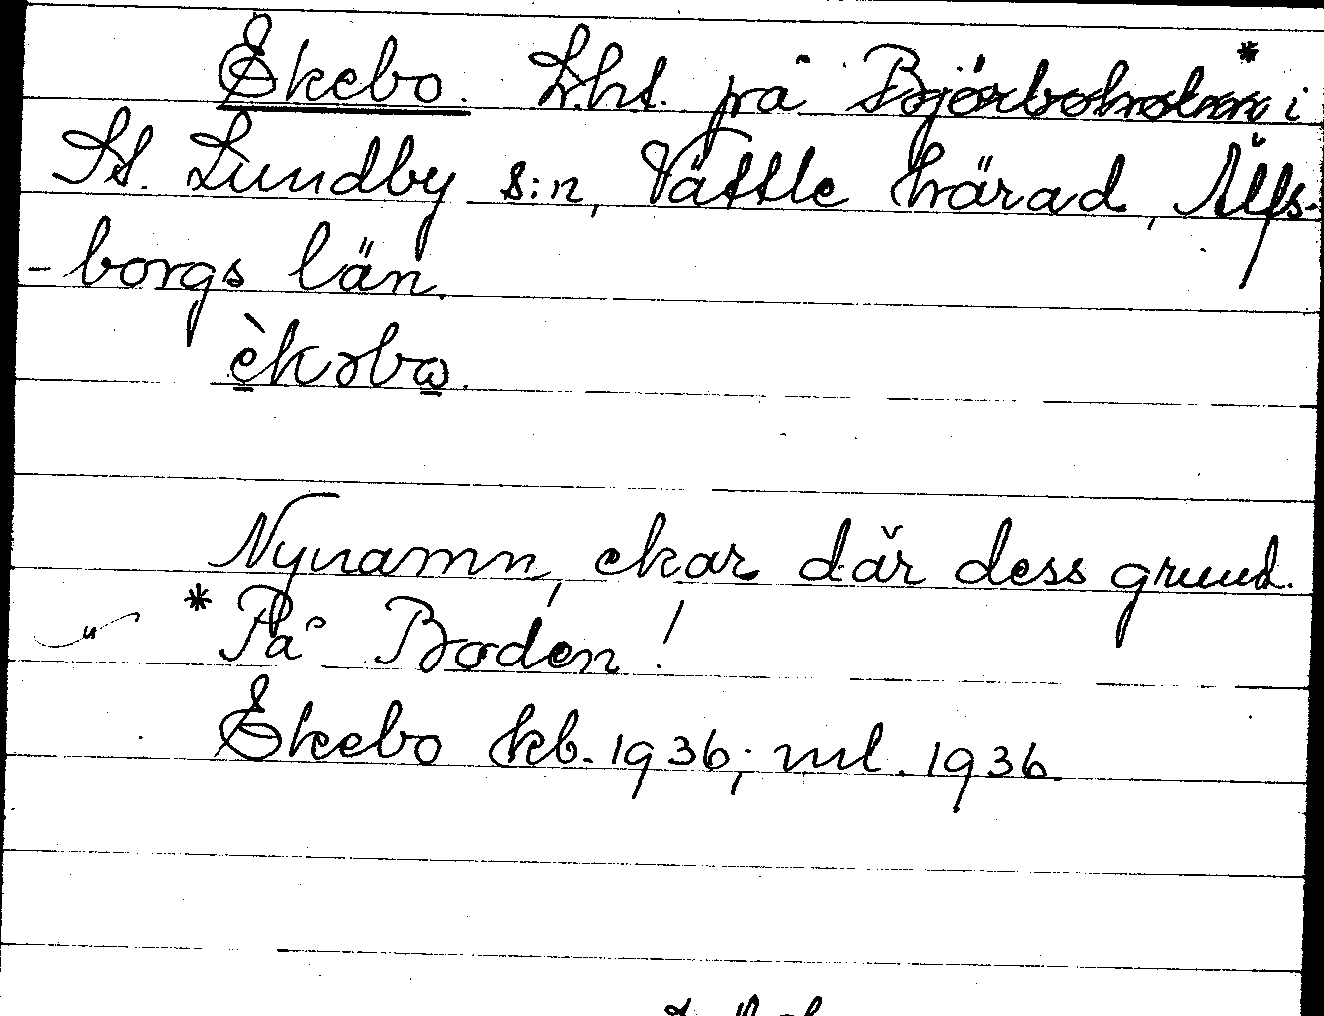 Ekebo. Lht. på Björboholm* i
St. Lundby s:n, Vättle härad, Älfs-
-borgs län.
èkəbω.
Nynamn, ekar där dess grund.
* På Boden!
Ekebo kb. 1936; ml. 1936